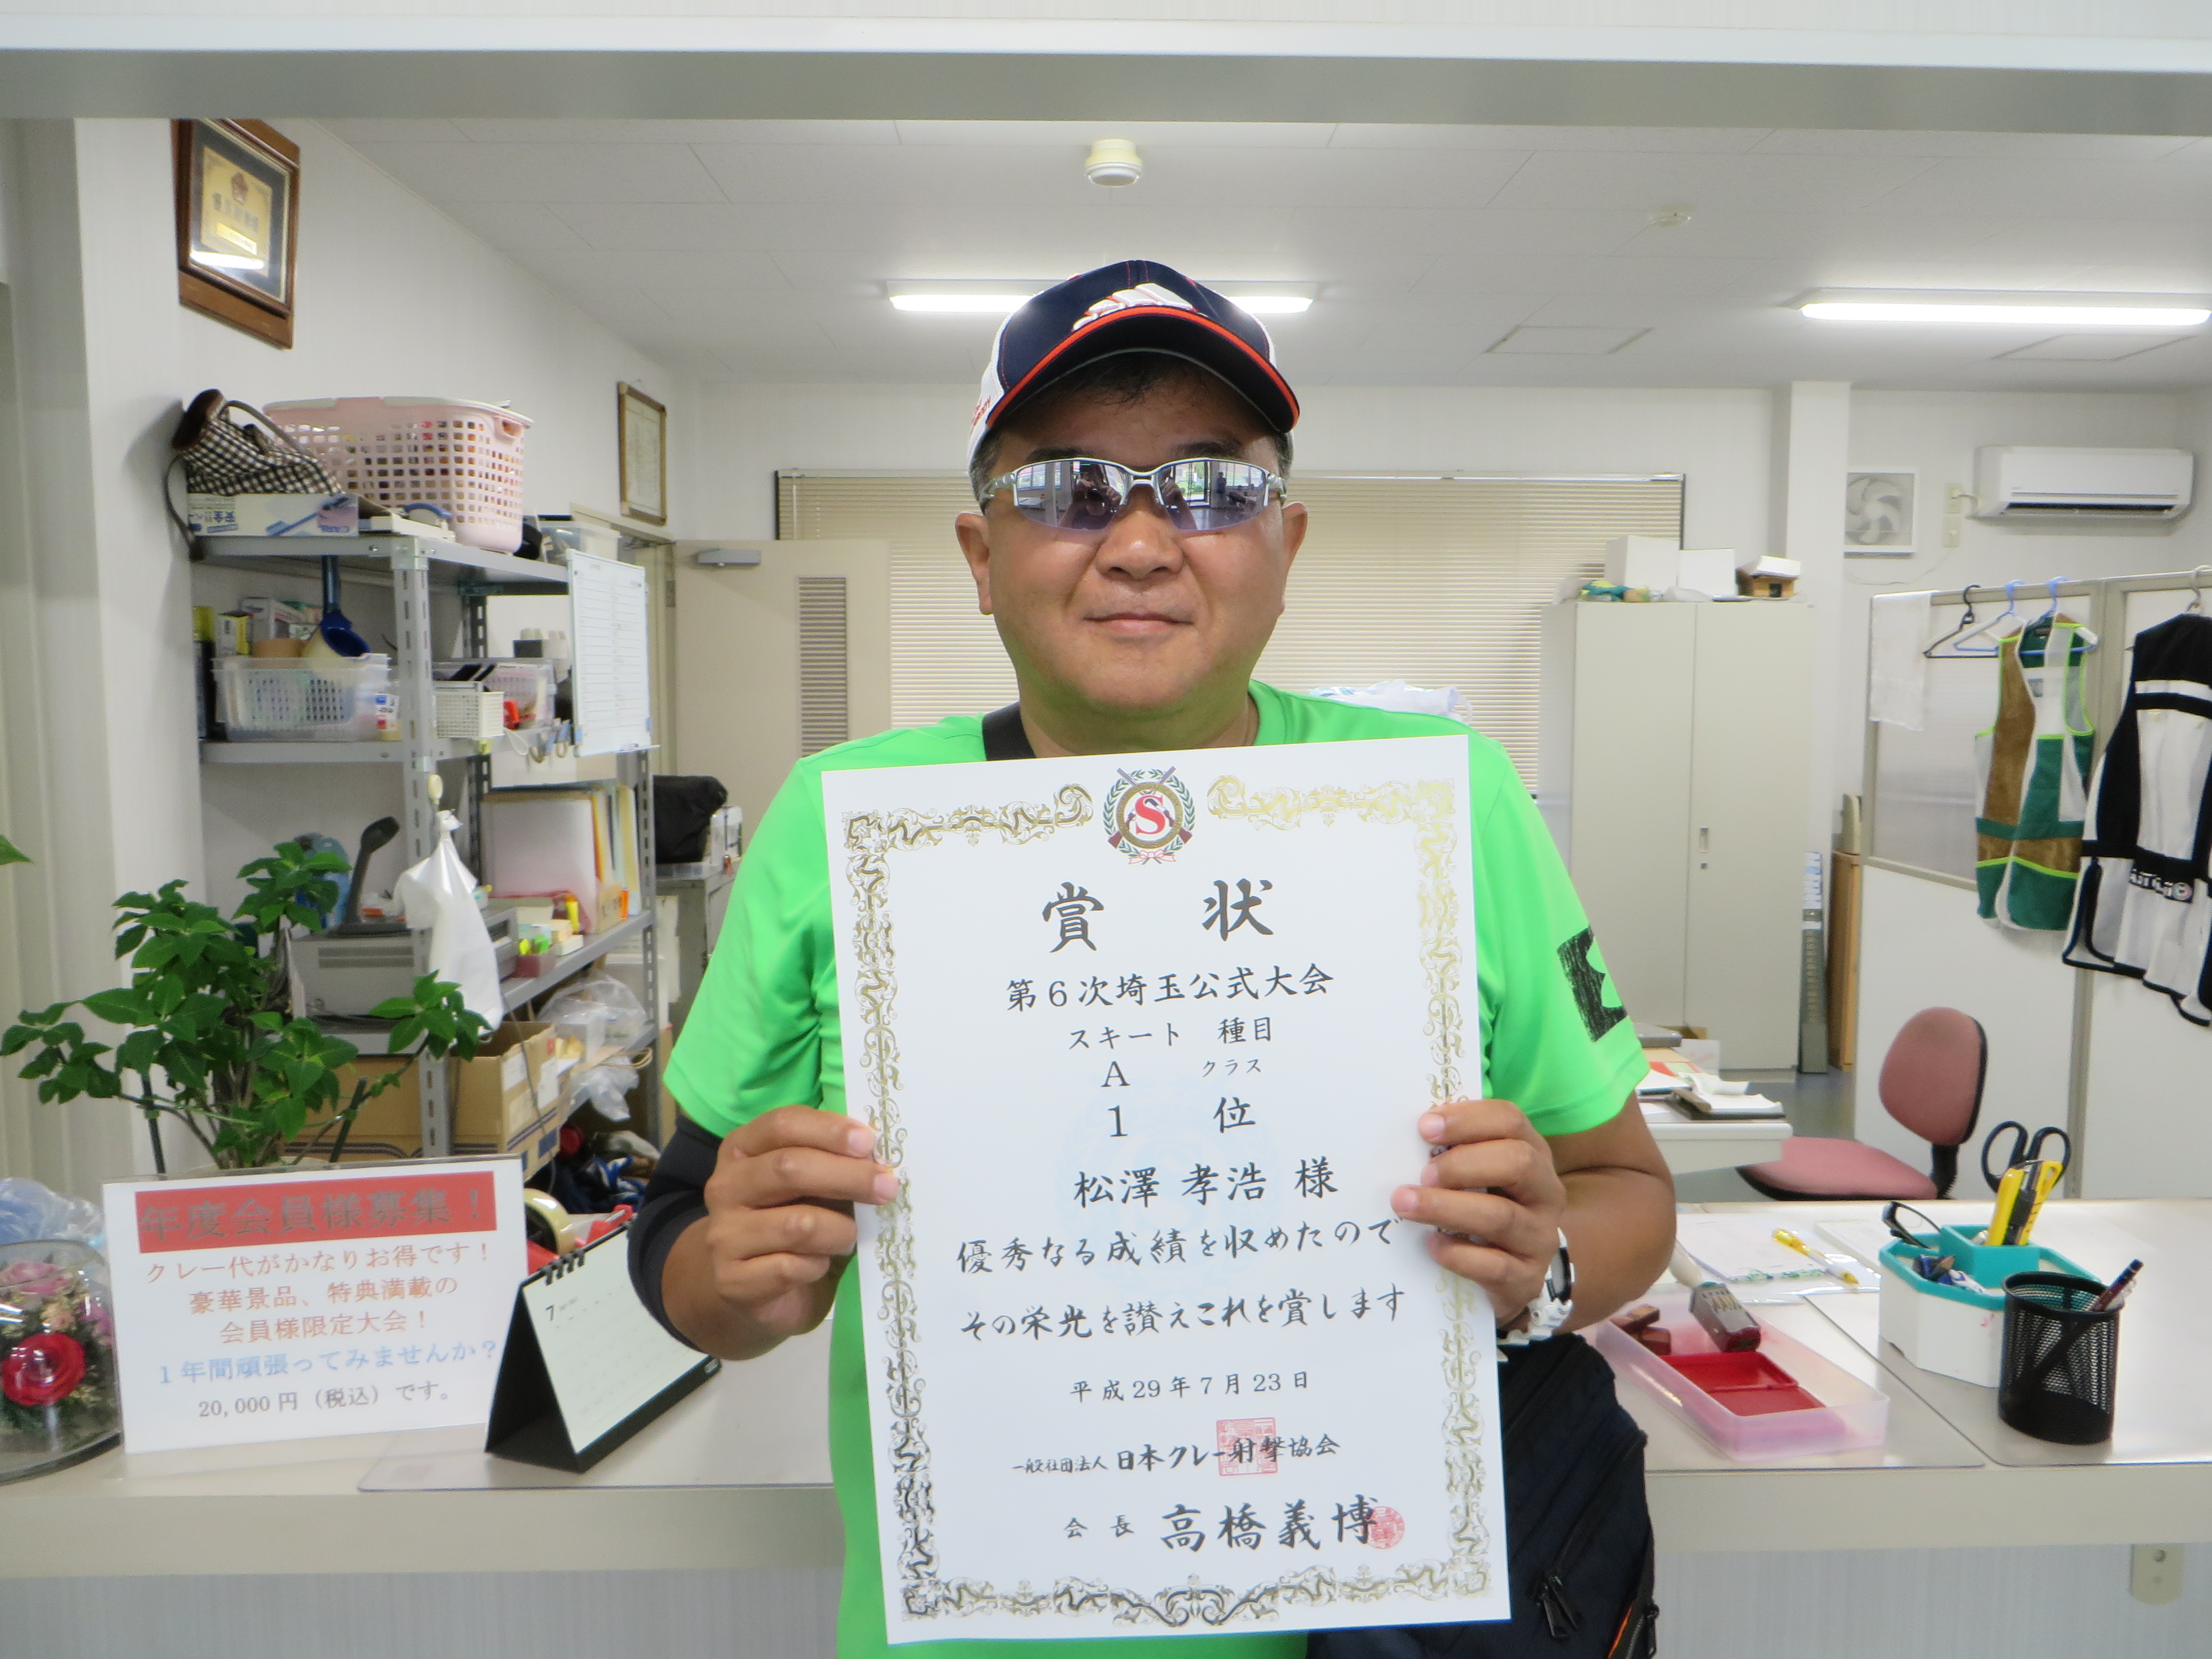 賞 状
第6次埼玉公式大会
スキート 種目
A クラス
1 位
松澤 孝浩 様
優秀なる成績を収めたので
その栄光を讃えこれを賞します
平成29年7月23日
一般社団法人 日本クレー射撃協会
会長 高橋義博
S
年度会員様募集！
クレー代がかなりお得です！
豪華景品、特典満載の
会員様限定大会！
1年間頑張ってみませんか？
20,000円（税込）です。
7